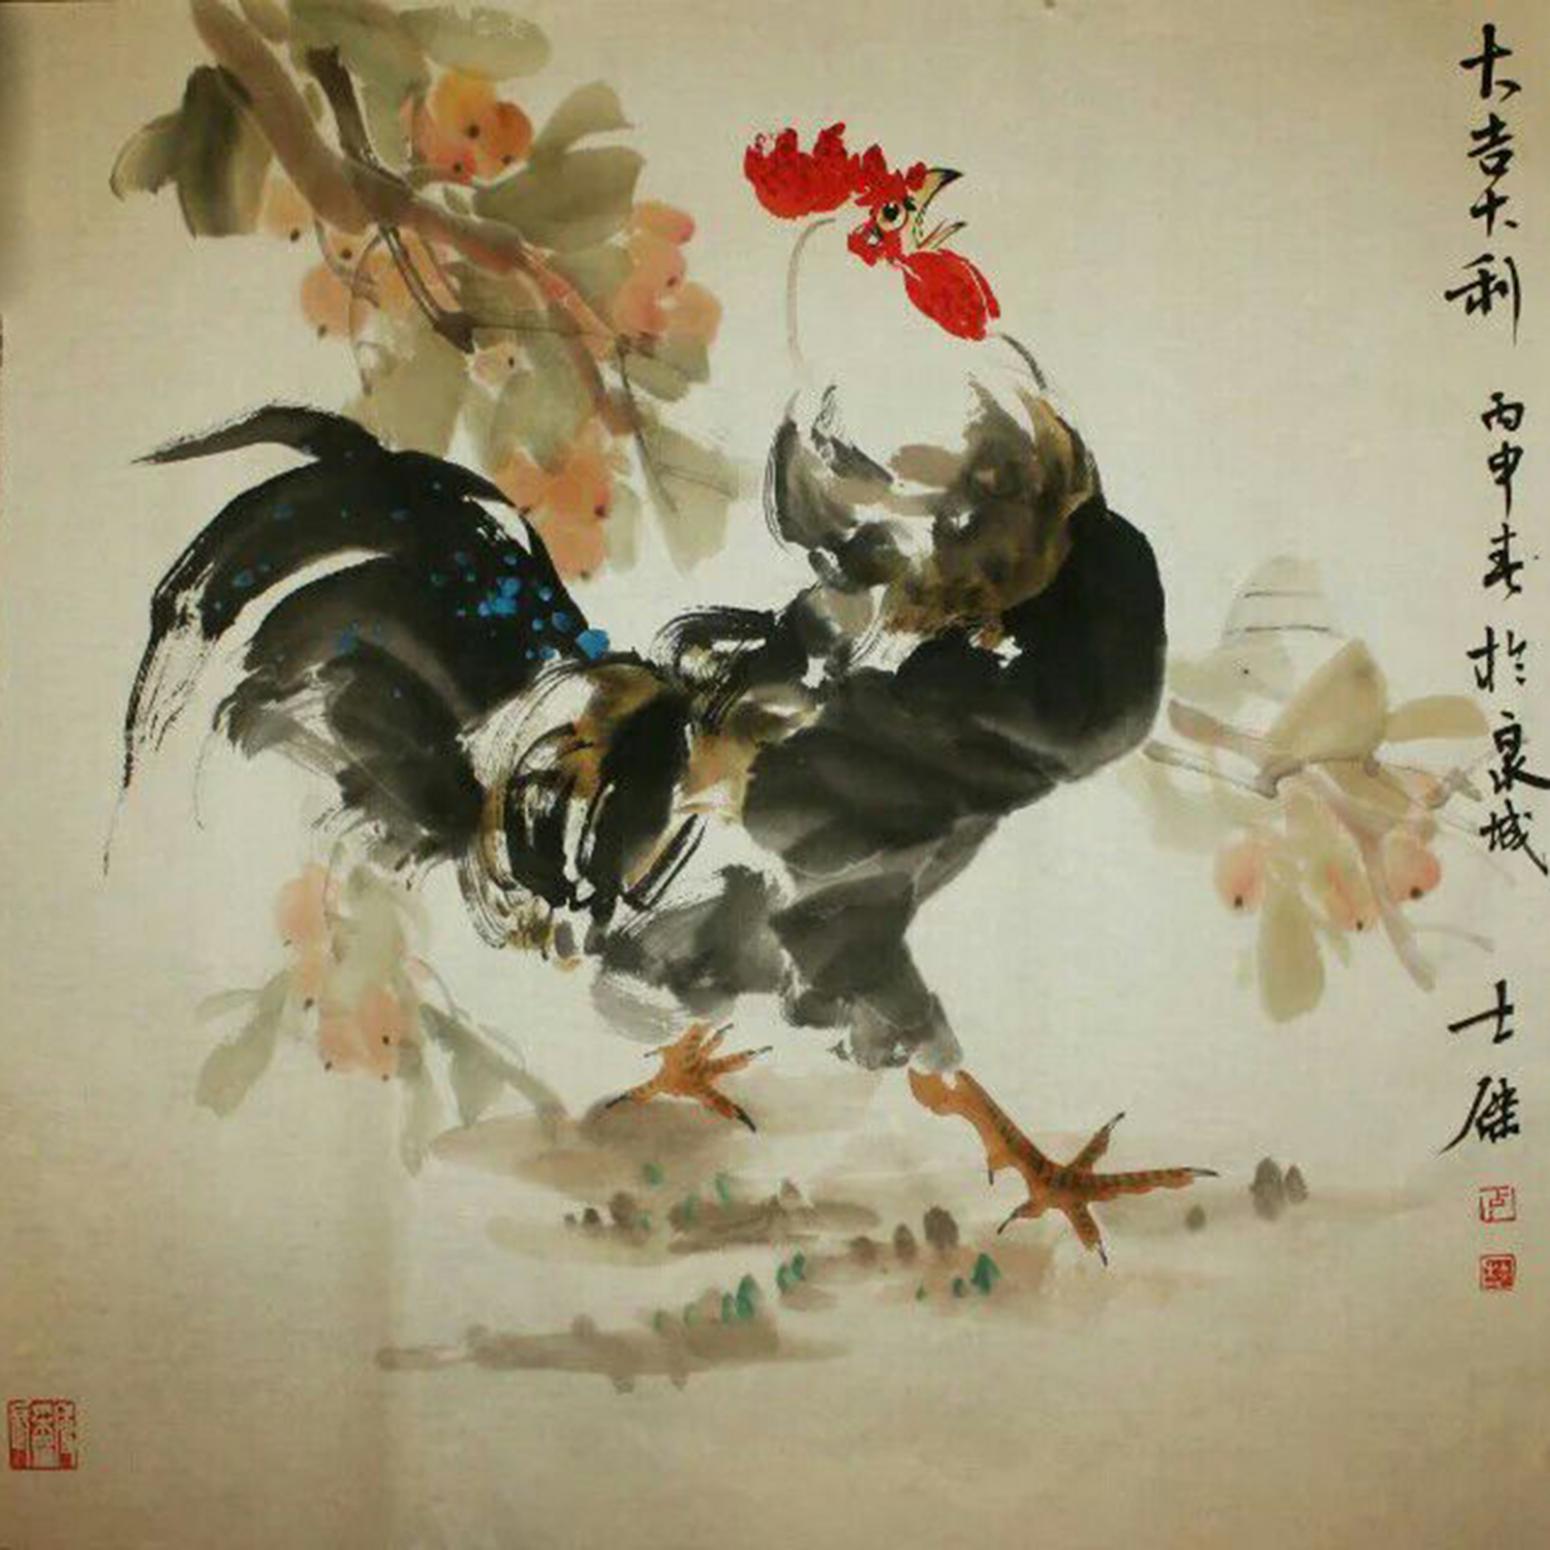 大吉大利 丙申春於泉城 士杰